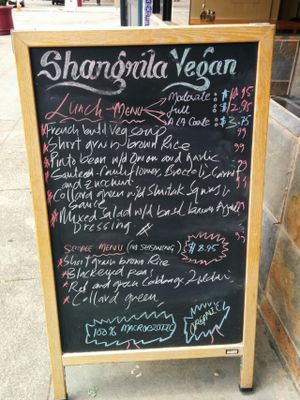 Shangrila Vegan
Lunch Menu
Moderate : $
Full : $
A LA Carte : $ 3.75
French lentil Veg soup
Short grain brown Rice
Pinto bean w/ Onion and garlic
Sauteed Cauliflower, Broccoli Carrot
and zucchini
Collard green w/
Sauce
Mixed Salad w/
Dressing
Menu (no substituting) $8.95
Short grain brown Rice
Blackeyed peas
Red and green Cabbage
Collard green
100% MACROBIOTIC
ORGANIC